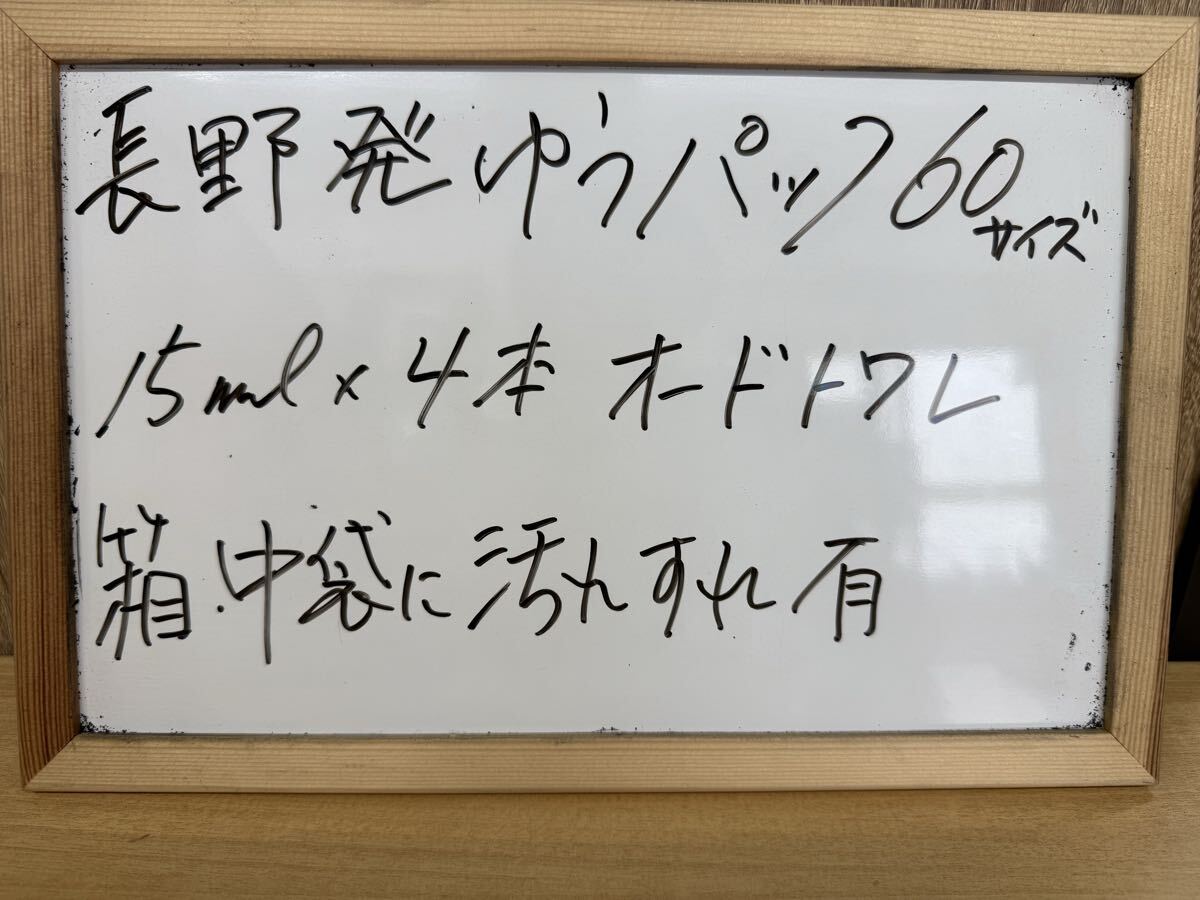 長野発 ゆうパック60サイズ
15ml×4本 オードトワレ
箱.中袋に汚れすれ有